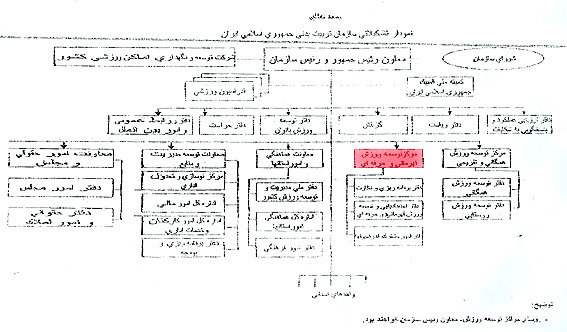 نمودار تشکیلاتی سازمان تربیت بدنی جمهوری اسلامی ایران
شورای سازمان
معاون رئیس جمهور و رئیس سازمان
شرکت توسعه و نگهداری اماکن ورزشی کشور
کمیته ملی المپیک
جمهوری اسلامی ایران
فدراسیون ورزشی
دفتر
عملکرد و
پاسخگویی به شکایات
دفتر
گزینش
دفتر توسعه
ورزش بانوان
دفتر حراست
دفتر روابط عمومی
و امور بین الملل
مرکز توسعه ورزش
همگانی و تفریحی
مرکز توسعه ورزش
قهرمانی و حرفه ای
معاونت هماهنگی
و امور استانها
معاونت توسعه مدیریت
و منابع
معاونت امور حقوقی
و مجلس
دفتر توسعه ورزش
همگانی
دفتر برنامه ریزی و نظارت
دفتر
مدیریت و
توسعه ورزش کشور
مرکز نوسازی و تحول
اداری
دفتر امور مجلس
دفتر توسعه ورزش
روستایی
دفتر
ورزش قهرمانی و حرفه ای
اداره کل هماهنگی
امور استانها
اداره کل امور مالی
دفتر حقوقی
و امور املاک
دفتر امور مشترک
دفتر امور فرهنگی
اداره کل امور کارکنان
و خدمات اداری
دفتر برنامه ریزی و
بودجه
واحدهای استانی
توضیح:
مراکز توسعه ورزش، معاون رئیس سازمان خواهند بود.